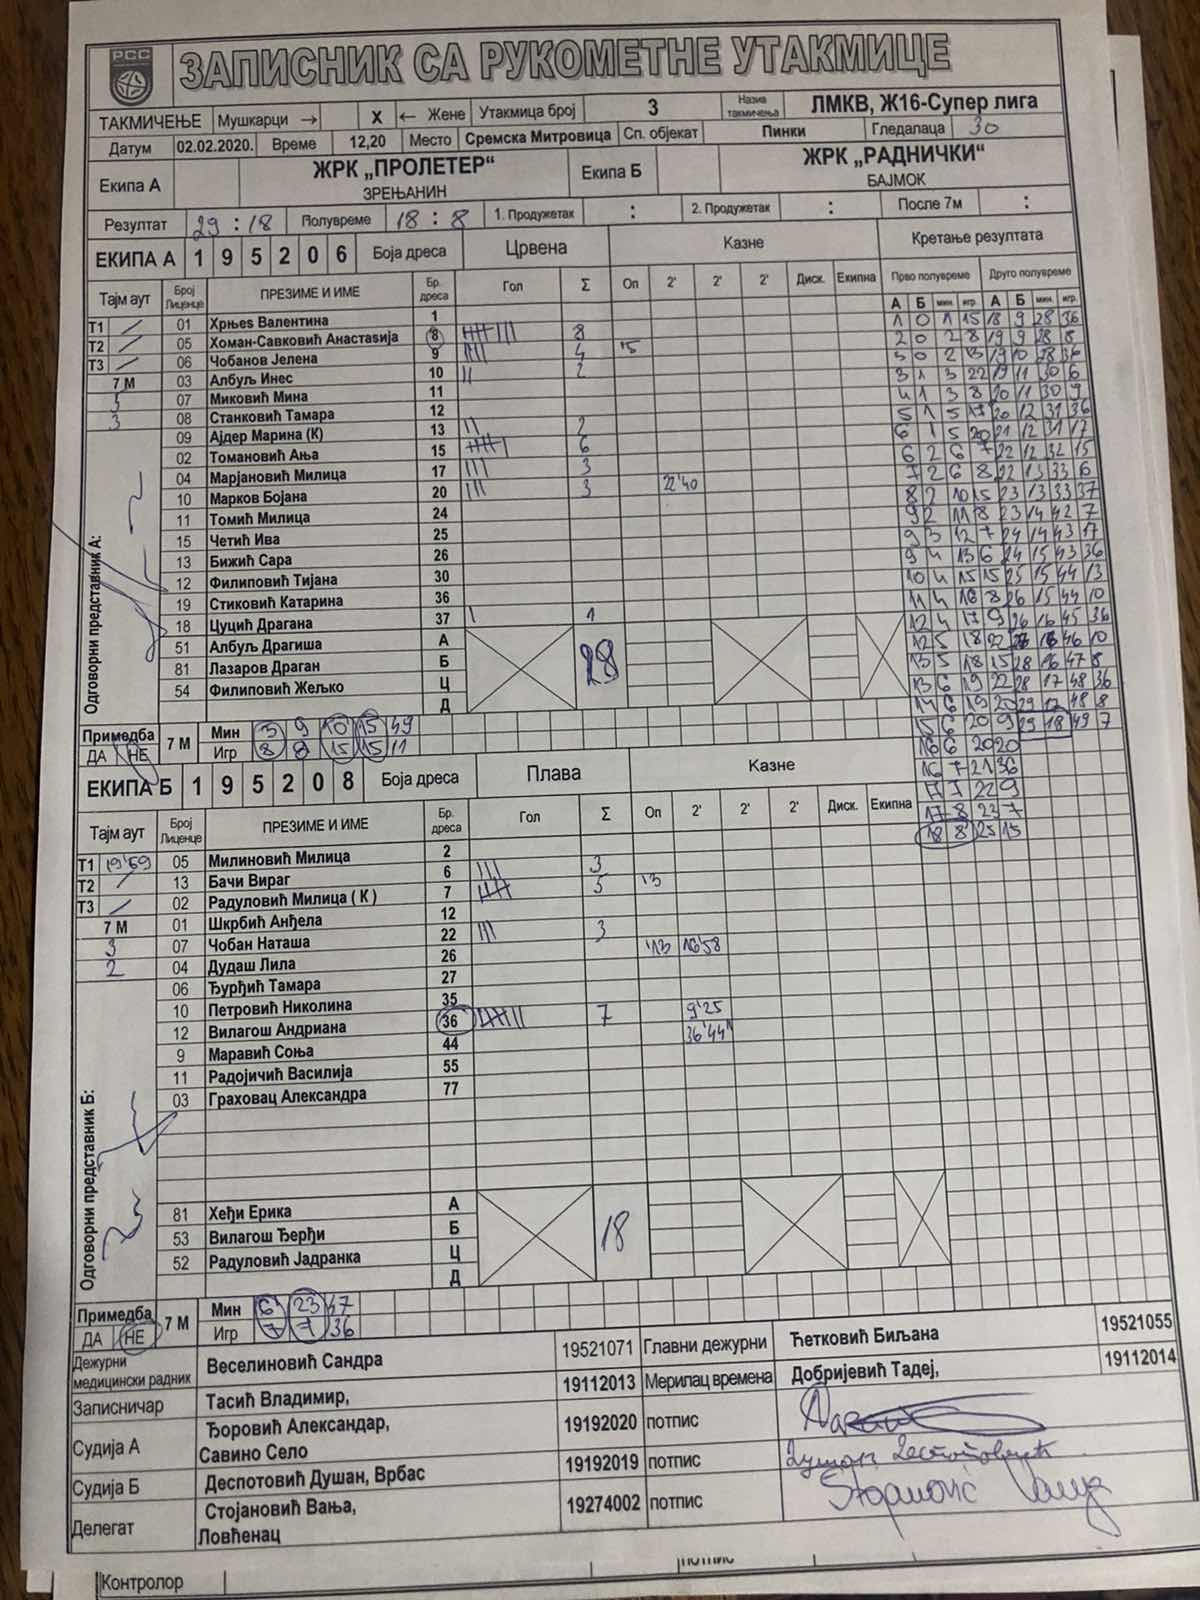 РСС
ЗАПИСНИК СА РУКОМЕТНЕ УТАКМИЦЕ
ТАКМИЧЕЊЕ Мушкарци → X ← Жене Утакмица број 3 Назив такмичења ЛМКВ, Ж16-Супер лига
Датум 02.02.2020. Време 12,20 Место Сремска Митровица Сп. објекат Пинки Гледалаца 30
Екипа А ЖРК „ПРОЛЕТЕР“ ЗРЕЊАНИН Екипа Б ЖРК „РАДНИЧКИ“ БАЈМОК
Резултат 29 : 18 Полувреме 18 : 8 1. Продужетак : 2. Продужетак : После 7м :
ЕКИПА А 1 9 5 2 0 6 Боја дреса Црвена Казне Кретање резултата
Тајм аут Број Лиценце ПРЕЗИМЕ И ИМЕ Бр. дреса Гол Σ Оп 2' 2' 2' Диск. Екипна Прво полувреме Друго полувреме
А Б мин. игр. А Б мин. игр.
Т1 / 01 Хрњеѕ Валентина 1
Т2 / 05 Хоман-Савковић Анастаѕија 8 8
Т3 / 06 Чобанов Јелена 9 4 '5
7 М 03 Албуљ Инес 10 2
5 07 Миковић Мина 11
3 08 Станковић Тамара 12
09 Ајдер Марина (К) 13 2
02 Томановић Ања 15 6
04 Марјановић Милица 17 3
10 Марков Бојана 20 3 22'40
11 Томић Милица 24
15 Четић Ива 25
13 Бижић Сара 26
12 Филиповић Тијана 30
19 Стиковић Катарина 36
18 Цуцић Драгана 37 1
51 Албуљ Драгиша А
81 Лазаров Драган Б
54 Филиповић Жељко Ц
Д
Одговорни представник А:
1 0 1 15 18 9 28 36
2 0 2 8 19 9 28 8
3 0 2 13 19 10 28 36
3 1 3 22 19 11 30 6
4 1 3 8 20 11 30 9
5 1 5 17 20 12 31 36
6 1 5 20 21 12 31 17
6 2 6 7 22 12 32 15
7 2 6 8 22 13 33 6
8 2 10 15 23 13 33 37
9 2 11 8 23 14 42 7
9 3 12 7 24 14 43 17
9 4 13 6 24 15 43 36
10 4 15 15 25 15 44 13
11 4 16 8 26 15 44 10
12 4 17 9 26 16 45 36
12 5 18 22 16 46 10
13 5 18 15 28 16 47 8
13 6 19 22 28 17 48 36
14 6 19 20 29 17 48 8
15 6 20 9 29 18 49 7
16 6 20 20
16 7 21 36
17 7 22 9
17 8 23 7
18 8 25 15
Примедба ДА НЕ 7 М Мин 3 9 10 15 49
Игр 8 8 15 15 11
ЕКИПА Б 1 9 5 2 0 8 Боја дреса Плава Казне
Тајм аут Број Лиценце ПРЕЗИМЕ И ИМЕ Бр. дреса Гол Σ Оп 2' 2' 2' Диск. Екипна
Т1 19'59 05 Милиновић Милица 2
Т2 / 13 Бачи Вираг 6 3
Т3 / 02 Радуловић Милица ( К ) 7 5 '13
7 М 01 Шкрбић Анђела 12
3 07 Чобан Наташа 22 3
2 04 Дудаш Лила 26 '13 16'58
06 Ђурђић Тамара 27
10 Петровић Николина 35
12 Вилагош Андриана 36 7 9'25
9 Маравић Соња 44 36'44
11 Радојичић Василија 55
03 Граховац Александра 77
81 Хеђи Ерика А
53 Вилагош Ђерђи Б 18
52 Радуловић Јадранка Ц
Д
Одговорни представник Б:
Примедба ДА НЕ 7 М Мин 6 23 47
Игр 7 7 36
Дежурни медицински радник Веселиновић Сандра 19521071 Главни дежурни Ћетковић Биљана 19521055
Записничар Тасић Владимир, 19112013 Мерилац времена Добријевић Тадеј, 19112014
Судија А Ђоровић Александар, Савино Село 19192020 потпис
Судија Б Деспотовић Душан, Врбас 19192019 потпис
Делегат Стојановић Вања, Ловћенац 19274002 потпис
Контролор потпис